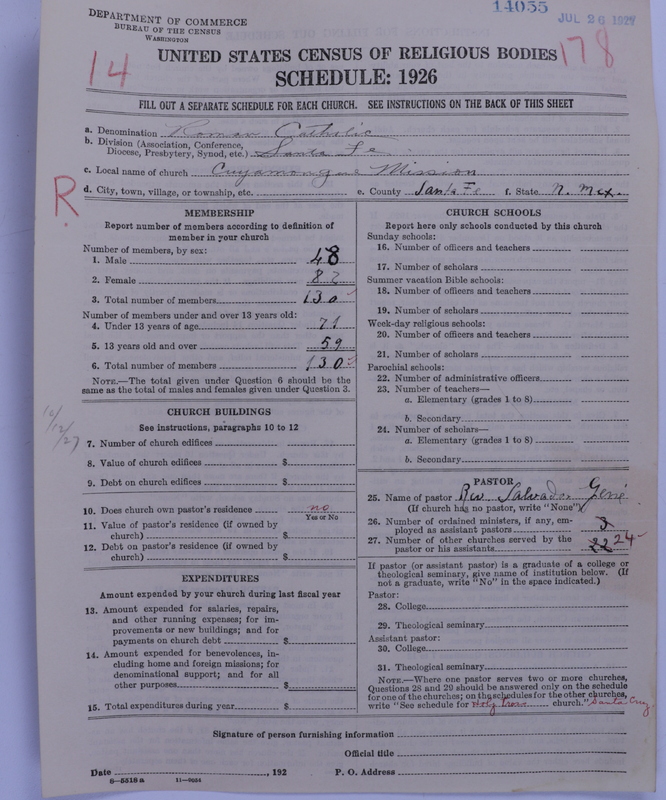 DEPARTMENT OF COMMERCE
BUREAU OF THE CENSUS
WASHINGTON
14055
JUL 26 1927
14
178
UNITED STATES CENSUS OF RELIGIOUS BODIES
SCHEDULE: 1926
FILL OUT A SEPARATE SCHEDULE FOR EACH CHURCH. SEE INSTRUCTIONS ON THE BACK OF THIS SHEET
a. Denomination Roman Catholic
b. Division (Association, Conference, Diocese, Presbytery, Synod, etc.) Santa Fe
c. Local name of church Cuyamongue Mission
d. City, town, village, or township, etc. e. County Santa Fe f. State N. Mex.
R.
MEMBERSHIP
Report number of members according to definition of
member in your church
Number of members, by sex:
1. Male 48
2. Female 82
3. Total number of members 130
Number of members under and over 13 years old:
4. Under 13 years of age 71
5. 13 years old and over 59
6. Total number of members 130
NOTE.—The total given under Question 6 should be
same as the total of males and females given under Question 3.
CHURCH BUILDINGS
See instructions, paragraphs 10 to 12
7. Number of church edifices
8. Value of church edifices $
9. Debt on church edifices $
10. Does church own pastor's residence no
Yes or No
11. Value of pastor's residence (if owned by
church) $
12. Debt on pastor's residence (if owned by
church) $
EXPENDITURES
Amount expended by your church during last fiscal year
13. Amount expended for salaries, repairs,
and other running expenses; for im-
provements or new buildings; and for
payments on church debt $
14. Amount expended for benevolences, in-
cluding home and foreign missions; for
denominational support; and for all
other purposes $
15. Total expenditures during year $
CHURCH SCHOOLS
Report here only schools conducted by this church
Sunday schools:
16. Number of officers and teachers
17. Number of scholars
Summer vacation Bible schools:
18. Number of officers and teachers
19. Number of scholars
Week-day religious schools:
20. Number of officers and teachers
21. Number of scholars
Parochial schools:
22. Number of administrative officers
23. Number of teachers—
a. Elementary (grades 1 to 8)
b. Secondary
24. Number of scholars—
a. Elementary (grades 1 to 8)
b. Secondary
PASTOR
25. Name of pastor Rev Salvador Gené
(If church has no pastor, write "None")
26. Number of ordained ministers, if any, em-
ployed as assistant pastors 3
27. Number of other churches served by the
pastor or his assistants 22 24
If pastor (or assistant pastor) is a graduate of a college or
theological seminary, give name of institution below. (If
not a graduate, write "No" in the space indicated.)
Pastor:
28. College
29. Theological seminary
Assistant pastor:
30. College
31. Theological seminary
NOTE.—Where one pastor serves two or more churches,
Questions 28 and 29 should be answered only on the schedule
for one of the churches; on the schedules for the other churches,
write "See schedule for Holy Cross church." Santa Cruz
10/12/27
Signature of person furnishing information
Official title
Date , 192 P. O. Address
8—5518a 11—9034